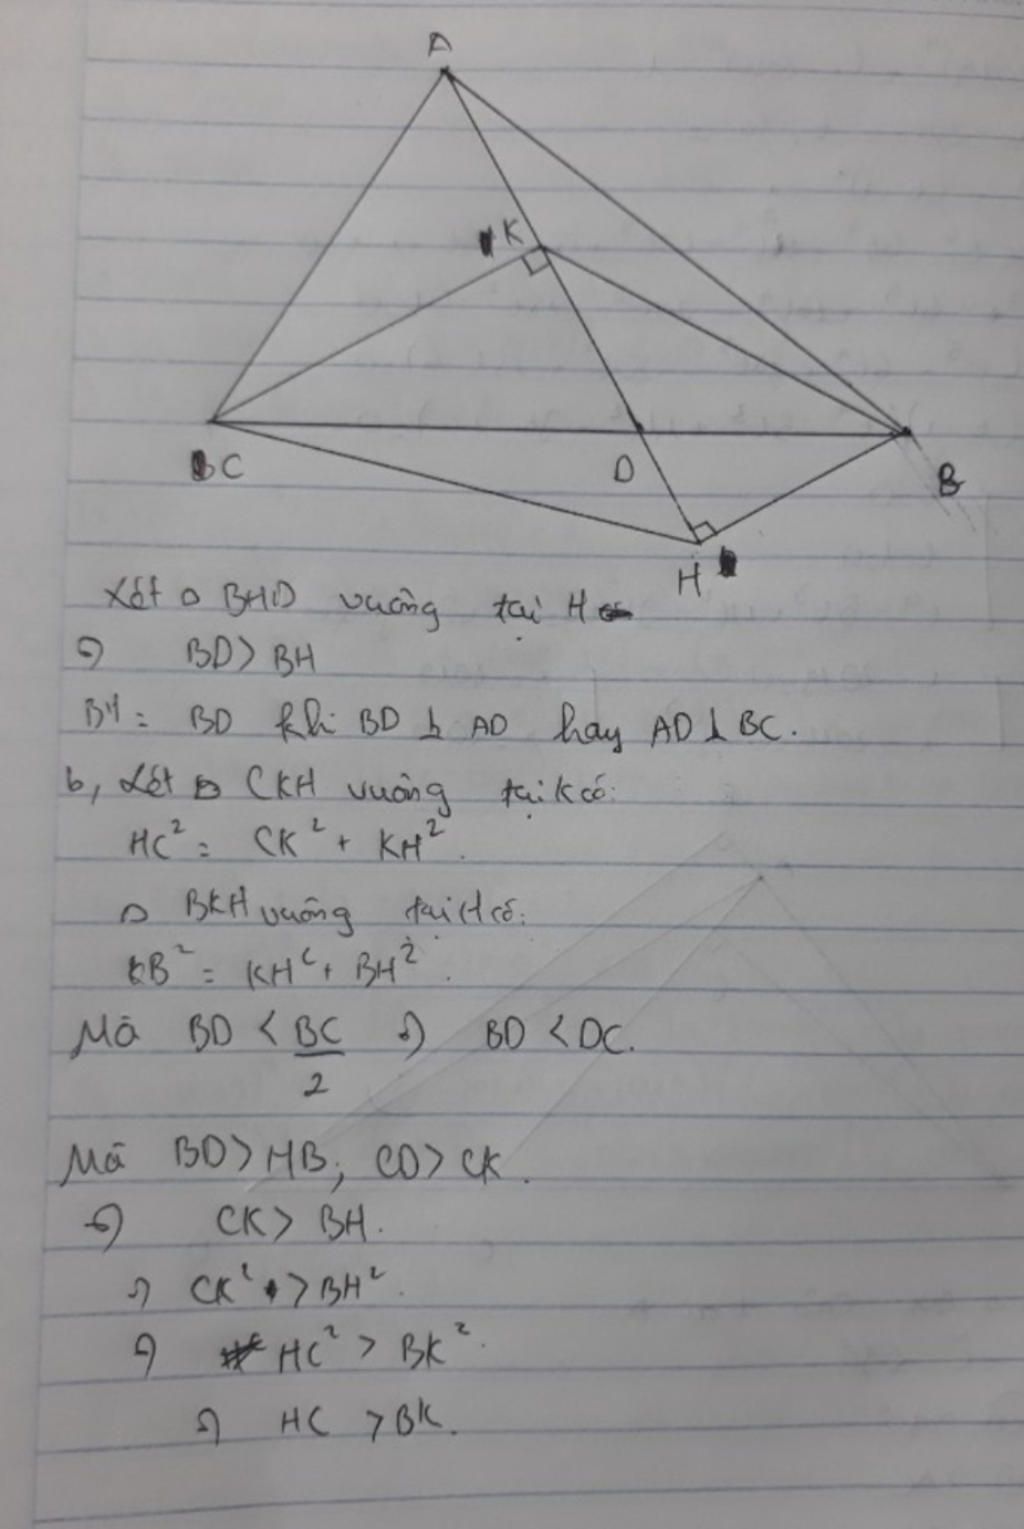 A
K
C
D
B
H
Xét Δ BHD vuông tại H
⇒ BD > BH
BH = BD khi BD ⊥ AD hay AD ⊥ BC.
b, Xét Δ CKH vuông tại K có:
HC² = CK² + KH².
Δ BKH vuông tại H có:
KB² = KH² + BH².
Mà BD < BC/2 ⇒ BD < DC.
Mà BD > HB; CD > CK.
⇒ CK > BH.
⇒ CK² > BH².
⇒ HC² > BK².
⇒ HC > BK.